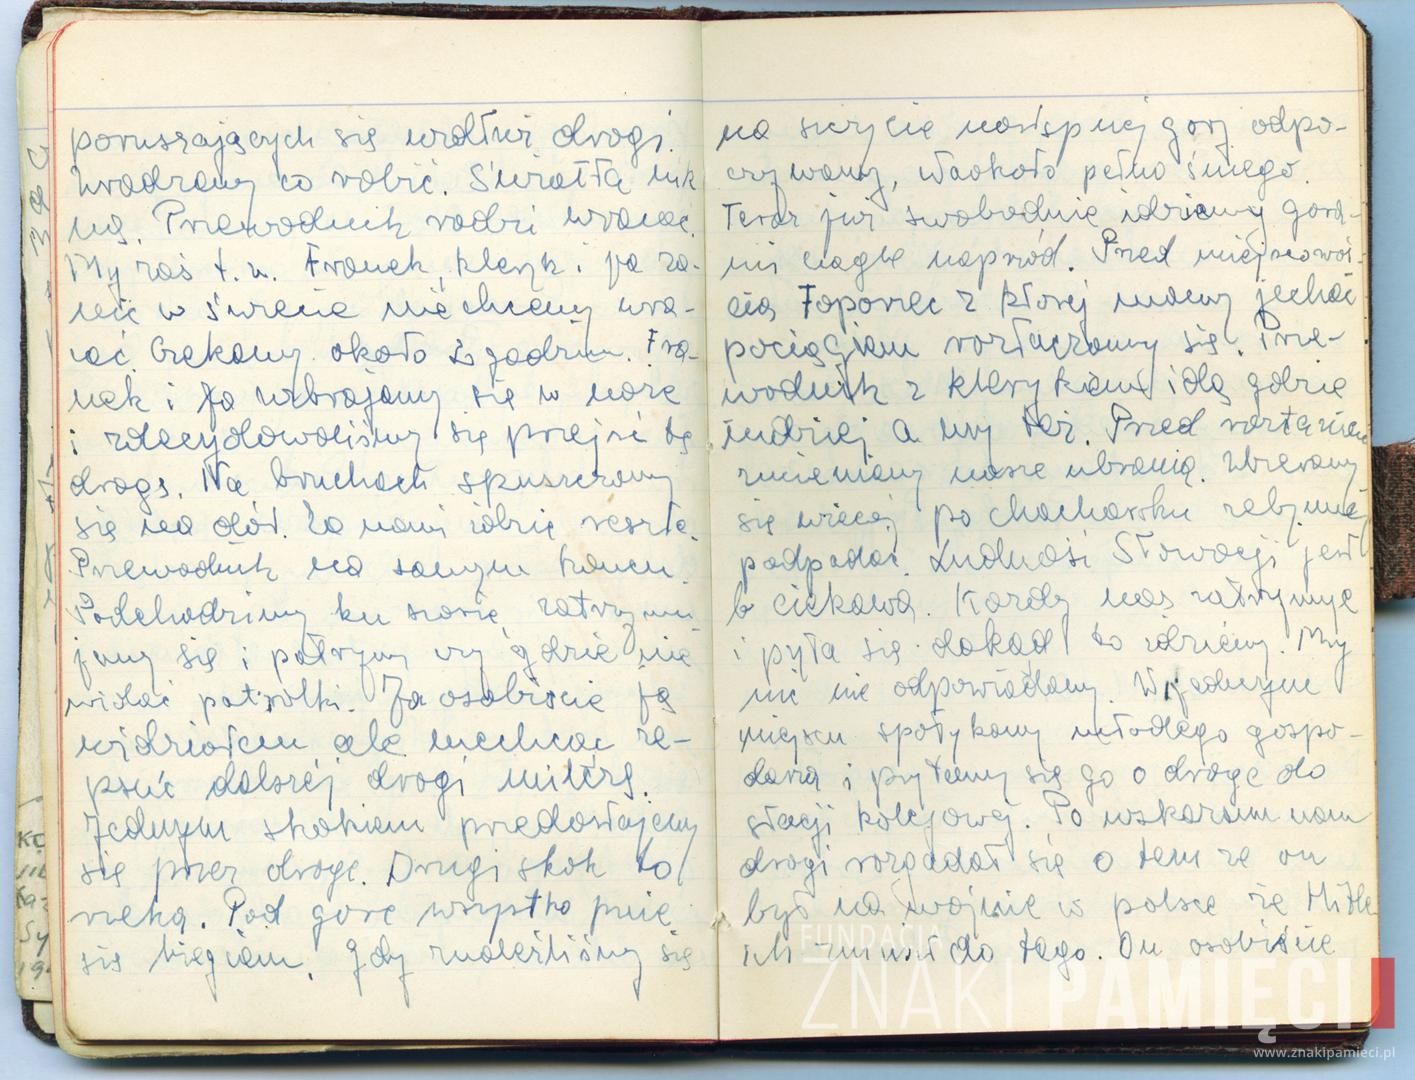 poruszających się wzdłuż drogi.
Uradzamy co robić. Światła nik
ną. Przewodnik radzi wracać.
My zaś t. zn. Franek, kleryk i ja za
nic w świecie nie chcemy wra-
cać. Czekamy około 2 godzin. Fra-
nek i ja uzbrajamy się w noże
i zdecydowaliśmy się przejść tę
drogę. Na brzuchach spuszczamy
się na dół. Za nami idzie reszta.
Przewodnik na samym końcu.
Podchodzimy ku szosie, zatrzymu-
jemy się i patrzymy czy gdzie nie
widać patrolki. Ja osobiście ją
widziałem ale niechcąc ze-
psuć dalszej drogi milczę.
Jednym skokiem przedostajemy
się przez drogę. Drugi skok to
rzeka. Pod górę wszystko pnie
się biegiem. Gdy znaleźliśmy się
na szczycie następnej góry odpo-
czywamy, wkoło pełno śniegu.
Teraz już swobodnie idziemy góra-
mi ciągle naprzód. Przed miejscowoś-
cią Toporiec z której mamy jechać
pociągiem rozłączamy się. Prze-
wodnik z klerykiem idą gdzie
indziej a my też. Przed rozstaniem
zmieniamy nasze ubrania. Ubieramy
się więcej po chacharsku żeby mniej
podpadać. Ludność Słowacji jest
b. ciekawa. Każdy nas zatrzymuje
i pyta się dokąd to idziemy. My
nic nie odpowiadamy. W jednym
miejscu spotykamy młodego gospo-
darza i pytamy się go o drogę do
stacji kolejowej. Po wskazaniu nam
drogi rozgadał się o tem że on
był na wojnie w polsce że Hitler
ich zmusił do tego. On osobiście
3 go C
FUNDACJA
ZNAKI PAMIĘCI
www.znakipamieci.pl